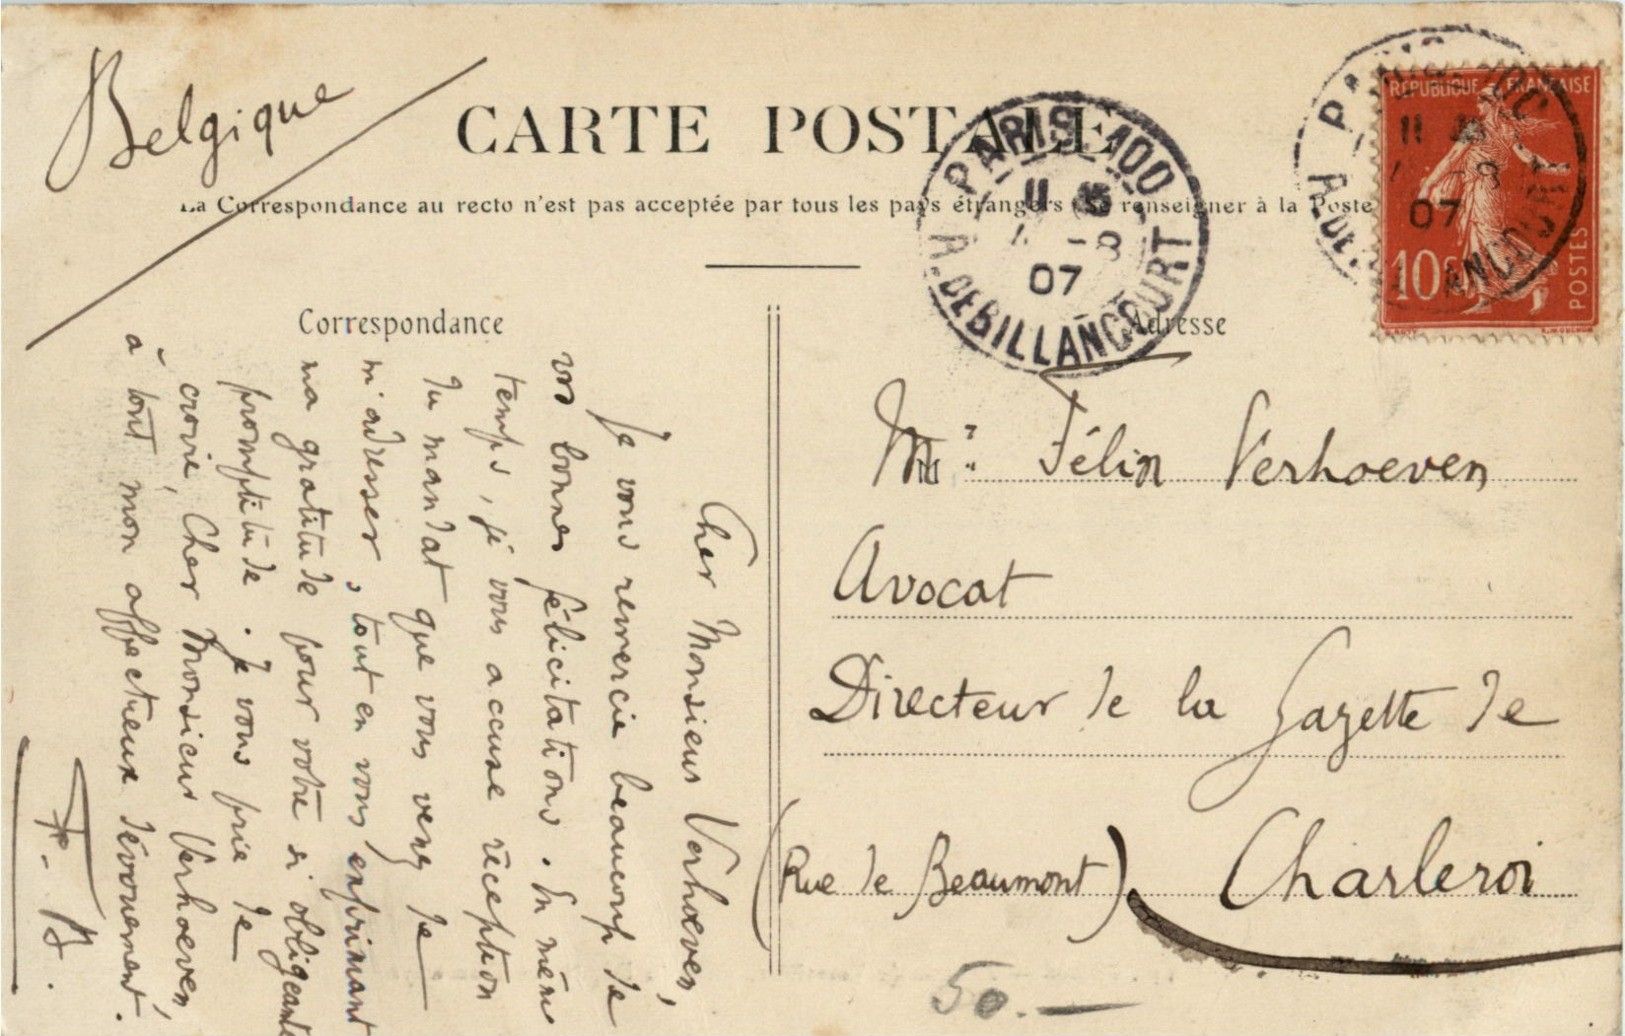 Belgique
CARTE POSTALE
La Correspondance au recto n'est pas acceptée par tous les pays étrangers (Se renseigner à la Poste
PARIS 100
11
- 8
07
R. DE BILLANCOURT
REPUBLIQUE FRANÇAISE
10c
POSTES
Correspondance
Cher Monsieur Verhoeven,
Je vous remercie beaucoup de
vos bonnes félicitations. En même
temps, je vous accuse réception
du mandat que vous venez de
m'adresser, tout en vous exprimant
ma gratitude pour votre si obligeante
promptitude. Je vous prie de
croire, Cher Monsieur Verhoeven,
à tout mon affectueux dévouement.
F. B.
Adresse
Mr: Félin Verhoeven
Avocat
Directeur de la Gazette de
(Rue de Beaumont) Charleroi
50.—